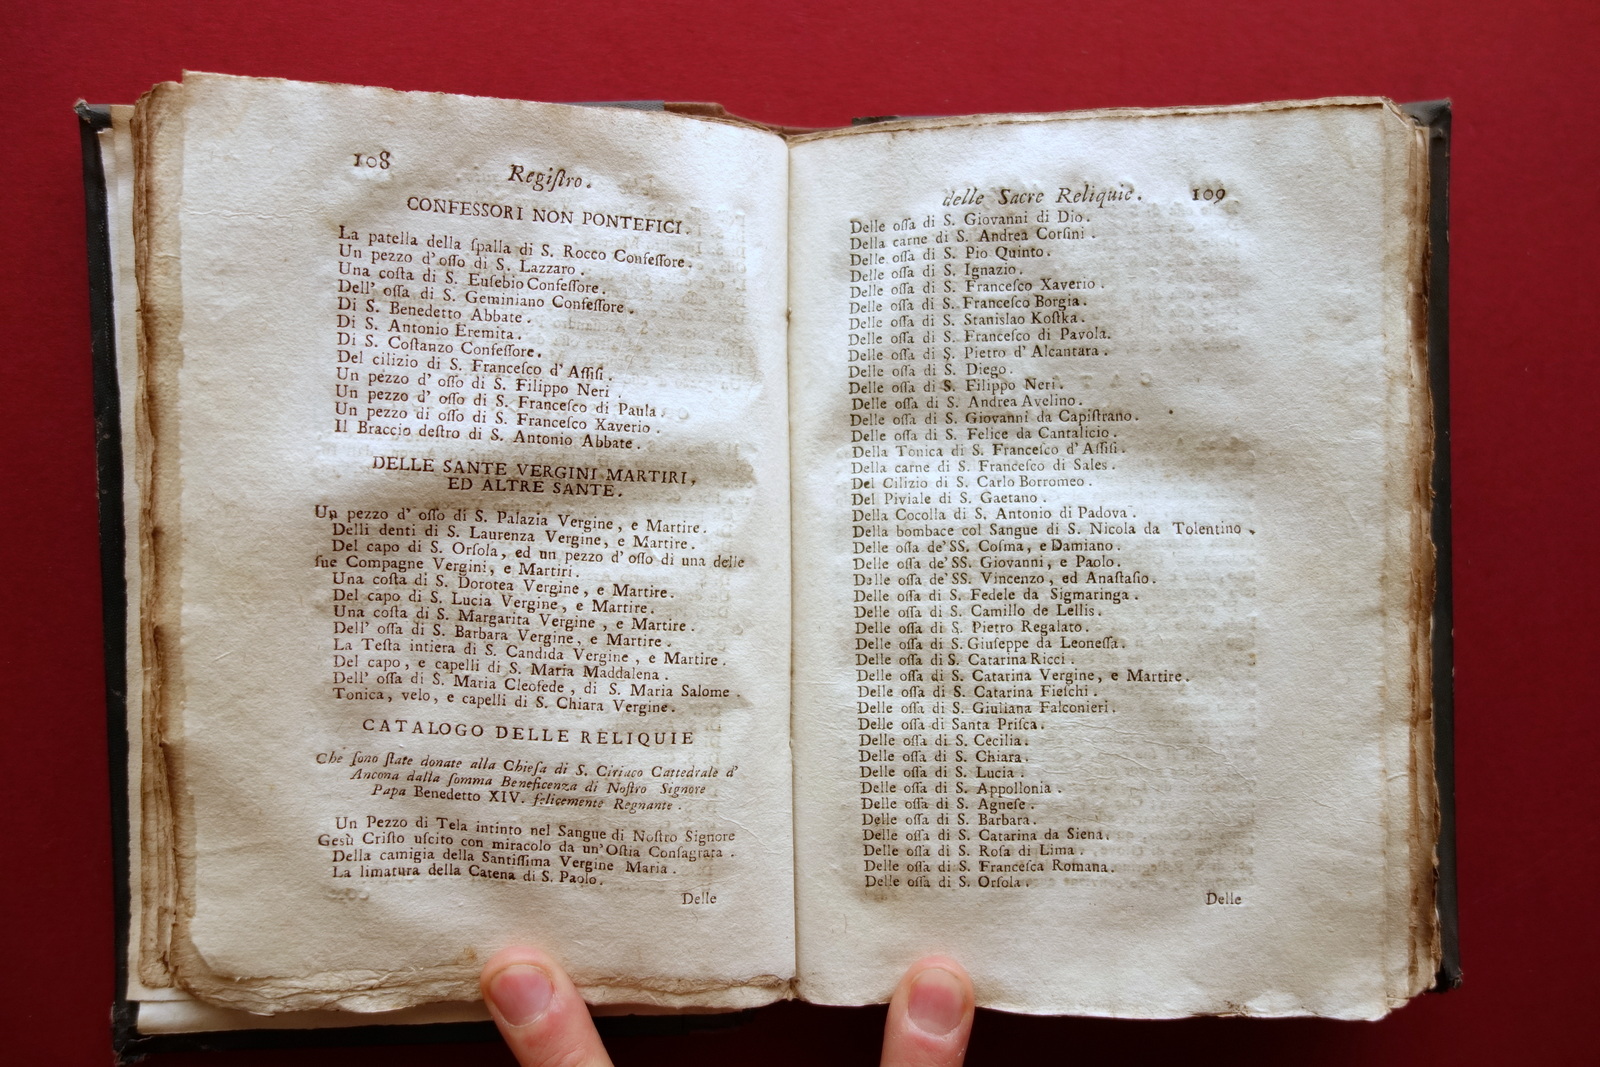 108
Regiſtro.
CONFESSORI NON PONTEFICI.
La patella della ſpalla di S. Rocco Confeſſore.
Un pezzo d'oſſo di S. Lazzaro.
Una coſta di S. Euſebio Confeſſore.
Dell' oſſa di S. Geminiano Confeſſore.
Di S. Benedetto Abbate.
Di S. Antonio Eremita.
Di S. Coſtanzo Confeſſore.
Del cilizio di S. Franceſco d'Aſſiſi.
Un pezzo d' oſſo di S. Filippo Neri.
Un pezzo d' oſſo di S. Franceſco di Paula.
Un pezzo di oſſo di S. Franceſco Xaverio.
Il Braccio deſtro di S. Antonio Abbate.
DELLE SANTE VERGINI MARTIRI,
ED ALTRE SANTE.
Un pezzo d' oſſo di S. Palazia Vergine, e Martire.
Delli denti di S. Laurenza Vergine, e Martire.
Del capo di S. Orſola, ed un pezzo d'oſſo di una delle
ſue Compagne Vergini, e Martiri.
Una coſta di S. Dorotea Vergine, e Martire.
Del capo di S. Lucia Vergine, e Martire.
Una coſta di S. Margarita Vergine, e Martire.
Dell' oſſa di S. Barbara Vergine, e Martire.
La Teſta intiera di S. Candida Vergine, e Martire.
Del capo, e capelli di S. Maria Maddalena.
Dell' oſſa di S. Maria Cleofede, di S. Maria Salome.
Tonica, velo, e capelli di S. Chiara Vergine.
CATALOGO DELLE RELIQUIE
Che ſono ſtate donate alla Chieſa di S. Ciriaco Cattedrale d'
Ancona dalla ſomma Beneficenza di Noſtro Signore
Papa Benedetto XIV. felicemente Regnante.
Un Pezzo di Tela intinto nel Sangue di Noſtro Signore
Gesù Criſto uſcito con miracolo da un'Oſtia Conſagrata.
Della camigia della Santiſſima Vergine Maria.
La limatura della Catena di S. Paolo.
Delle
delle Sacre Reliquie. 109
Delle oſſa di S. Giovanni di Dio.
Della carne di S. Andrea Corſini.
Delle oſſa di S. Pio Quinto.
Delle oſſa di S. Ignazio.
Delle oſſa di S. Franceſco Xaverio.
Delle oſſa di S. Franceſco Borgia.
Delle oſſa di S. Stanislao Koſtka.
Delle oſſa di S. Franceſco di Pavola.
Delle oſſa di S. Pietro d' Alcantara.
Delle oſſa di S. Diego.
Delle oſſa di S. Filippo Neri.
Delle oſſa di S. Andrea Avelino.
Delle oſſa di S. Giovanni da Capiſtrano.
Delle oſſa di S. Felice da Cantalicio.
Della Tonica di S. Franceſco d' Aſſiſi.
Della carne di S. Franceſco di Sales.
Del Cilizio di S. Carlo Borromeo.
Del Piviale di S. Gaetano.
Della Cocolla di S. Antonio di Padova.
Della bombace col Sangue di S. Nicola da Tolentino.
Delle oſſa de' SS. Coſma, e Damiano.
Delle oſſa de' SS. Giovanni, e Paolo.
Dalle oſſa de' SS. Vincenzo, ed Anaſtaſio.
Delle oſſa di S. Fedele da Sigmaringa.
Delle oſſa di S. Camillo de Lellis.
Delle oſſa di S. Pietro Regalato.
Delle oſſa di S. Giuſeppe da Leoneſſa.
Delle oſſa di S. Catarina Ricci.
Delle oſſa di S. Catarina Vergine, e Martire.
Delle oſſa di S. Catarina Fieſchi.
Delle oſſa di S. Giuliana Falconieri.
Delle oſſa di Santa Priſca.
Delle oſſa di S. Cecilia.
Delle oſſa di S. Chiara.
Delle oſſa di S. Lucia.
Delle oſſa di S. Appollonia.
Delle oſſa di S. Agneſe.
Delle oſſa di S. Barbara.
Delle oſſa di S. Catarina da Siena.
Delle oſſa di S. Roſa di Lima.
Delle oſſa di S. Franceſca Romana.
Delle oſſa di S. Orſola.
Delle